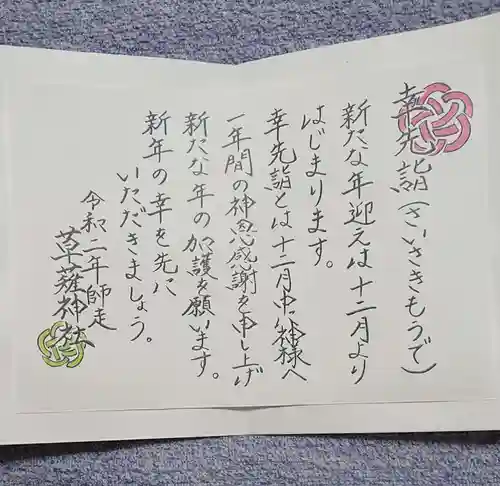 幸先詣(さいさきもうで)
新たな年迎えは十二月より
はじまります。
幸先詣とは十二月中に神様へ
一年間の神恩感謝を申し上げ
新たな年の加護を願います。
新年の幸を先に
いただきましょう。
令和二年師走
草薙神社